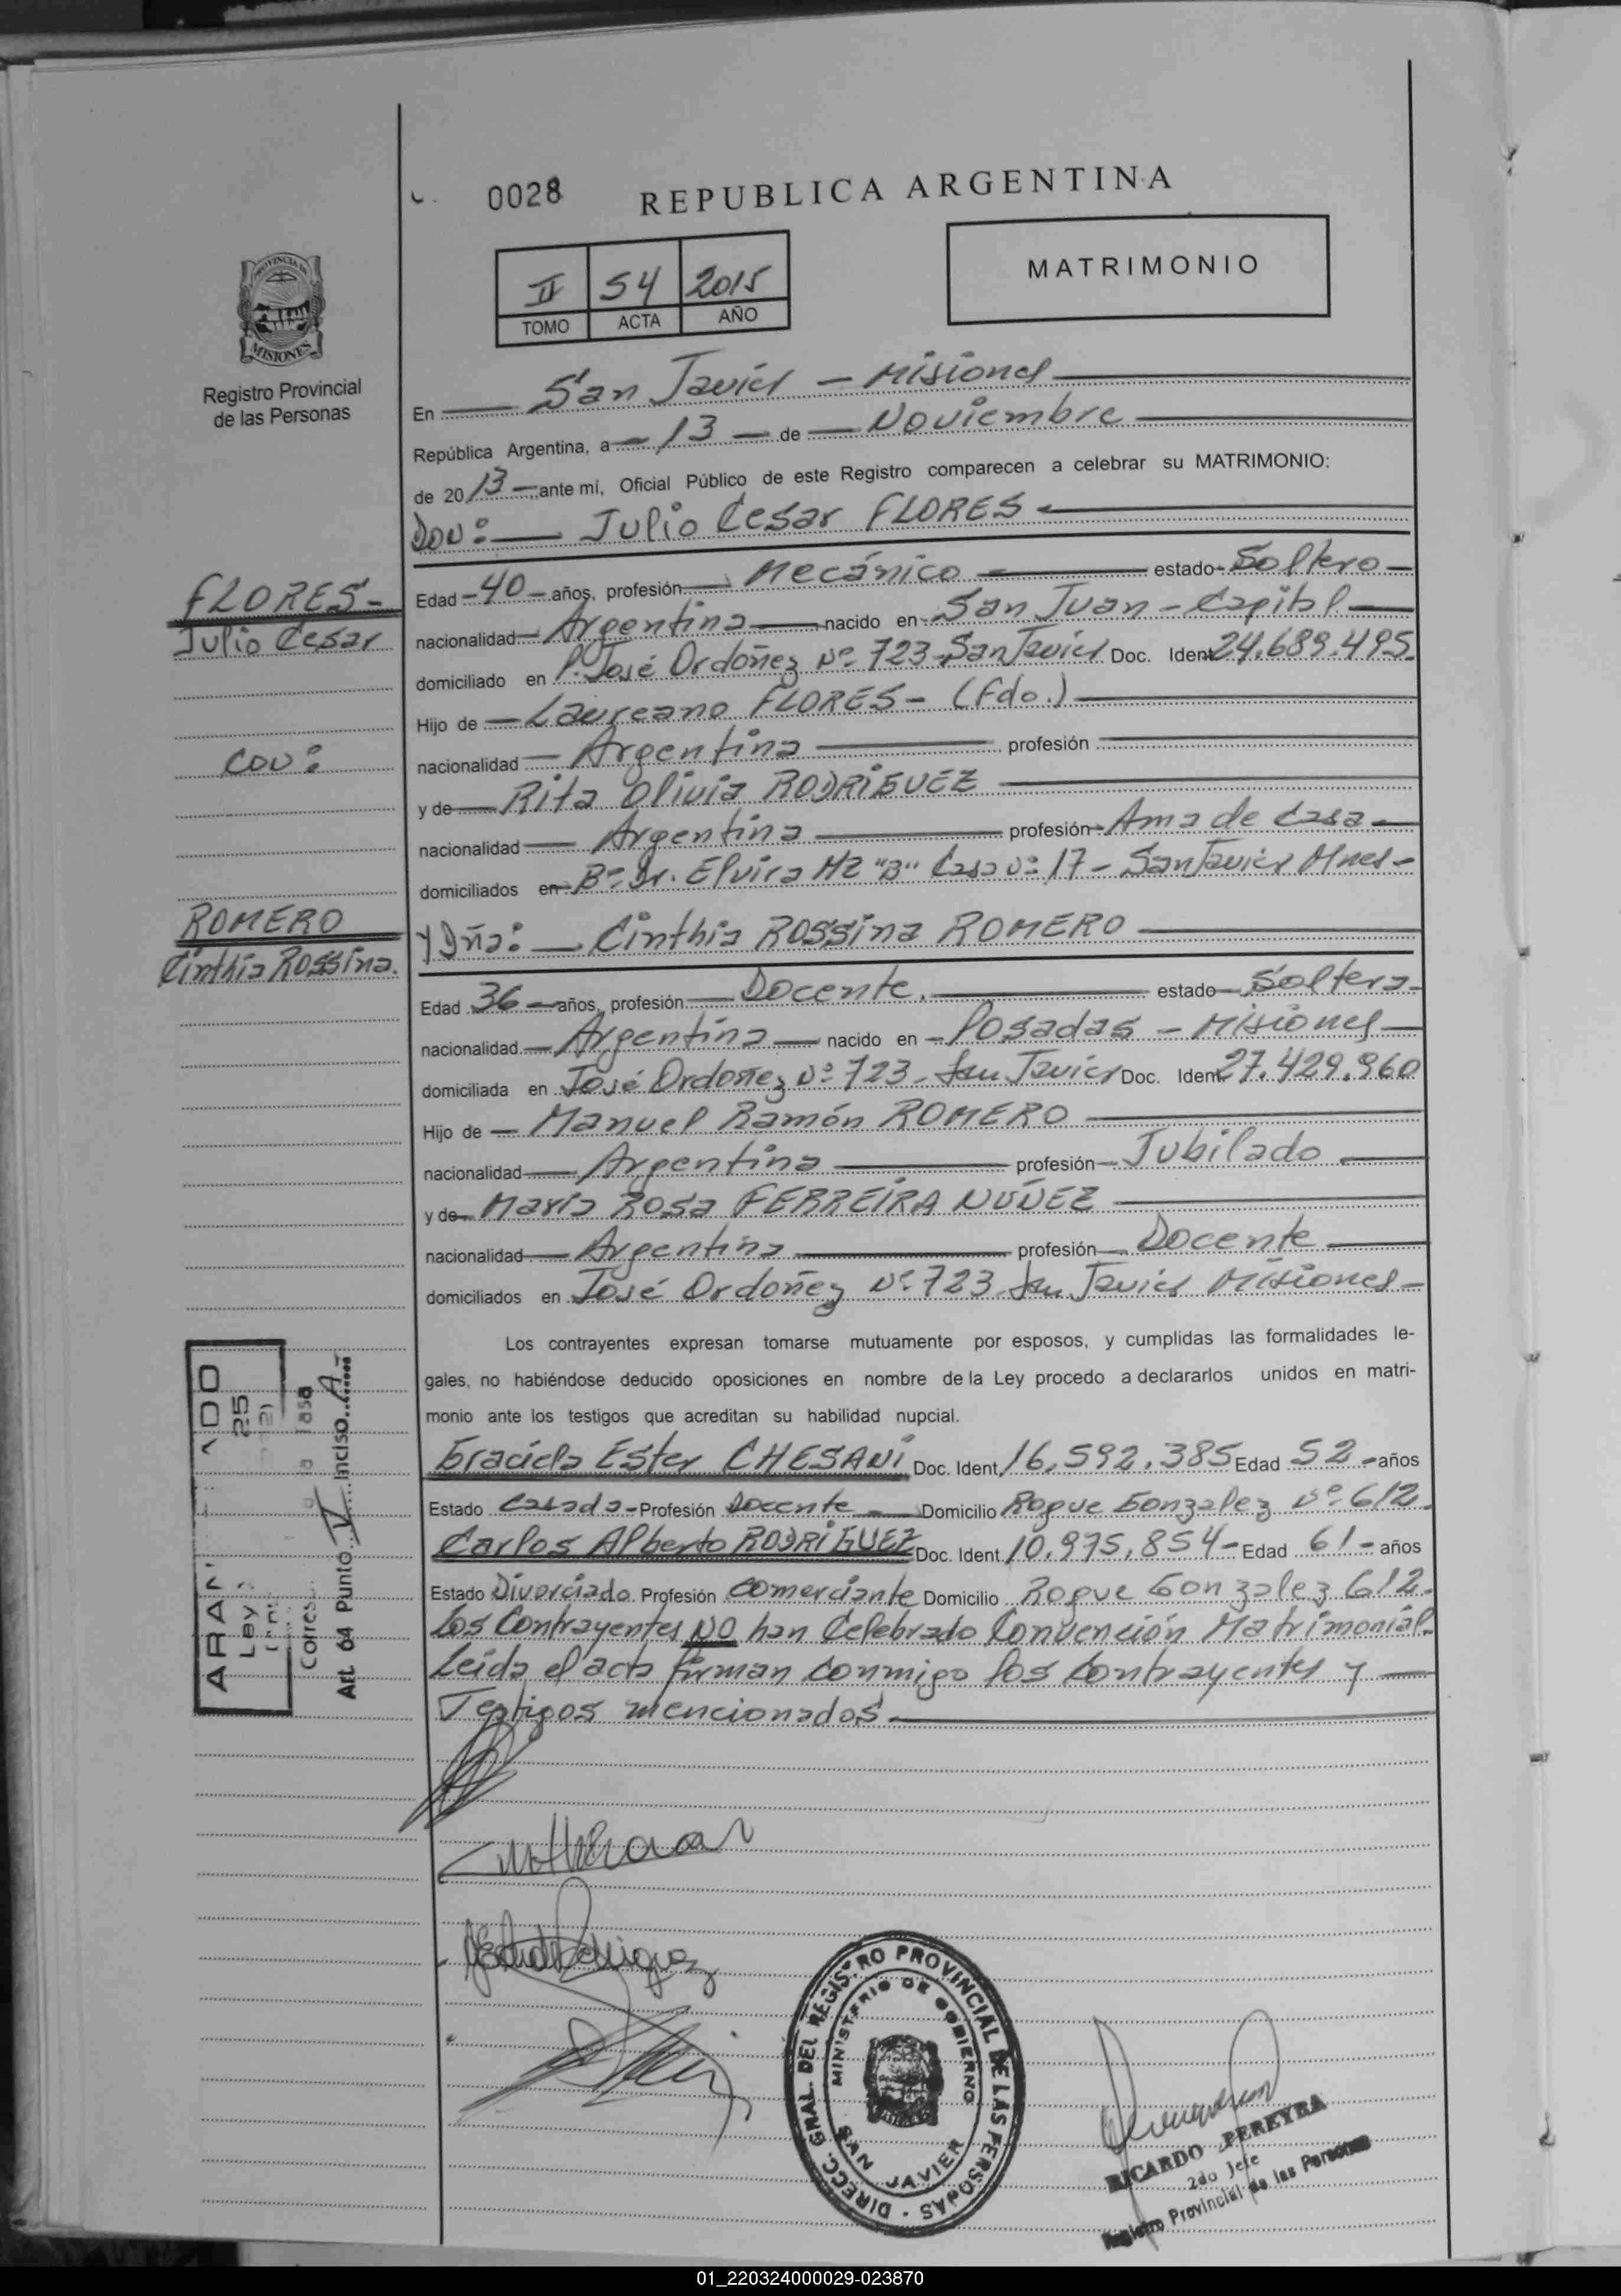 0028
REPUBLICA ARGENTINA
II 54 2015
TOMO ACTA AÑO
MATRIMONIO
PROVINCIA DE
MISIONES
Registro Provincial
de las Personas
En San Javier - Misiones
República Argentina, a - 13 - de Noviembre
de 2013 ante mi, Oficial Público de este Registro comparecen a celebrar su MATRIMONIO:
Don: Julio Cesar FLORES
FLORES-
Julio Cesar
con:
ROMERO
Cinthia Rossina.
Edad - 40 - años, profesión Mecánico estado Soltero
nacionalidad Argentina nacido en San Juan - Capital
domiciliado en P. José Ordoñez Nº 723 San Javier Doc. Ident 24.689.495.
Hijo de Laureano FLORES - (Fdo.)
nacionalidad Argentina profesión
y de Rita Olivia RODRIGUEZ
nacionalidad Argentina profesión Ama de Casa
domiciliados en Bº Dr. Elvira Mz "B" Casa Nº 17 - San Javier Mnes-
Y Dña: Cinthia Rossina ROMERO
Edad 36 años, profesión Docente. estado Soltera
nacionalidad Argentina nacido en Posadas - Misiones
domiciliada en José Ordoñez Nº 723 - San Javier Doc. Ident 27.429.960
Hijo de Manuel Ramón ROMERO
nacionalidad Argentina profesión Jubilado
y de María Rosa FERREIRA NUÑEZ
nacionalidad Argentina profesión Docente
domiciliados en José Ordoñez Nº 723 San Javier Misiones-
Los contrayentes expresan tomarse mutuamente por esposos, y cumplidas las formalidades le-
gales, no habiéndose deducido oposiciones en nombre de la Ley procedo a declararlos unidos en matri-
monio ante los testigos que acreditan su habilidad nupcial.
Graciela Ester CHESANI Doc. Ident 16.592.385 Edad 52 - años
Estado Casada - Profesión Docente Domicilio Roque Gonzalez Nº 612.
Carlos Alberto RODRIGUEZ Doc. Ident 10.975.854 - Edad 61 - años
Estado Divorciado Profesión Comerciante Domicilio Roque Gonzalez 612.
Los Contrayentes NO han Celebrado Convención Matrimonial.
Leída el acta firman conmigo los contrayentes y
Testigos mencionados.
Ley
Corres
la Tasa
Art. 64 Punto V Inciso A
DIRECC. GRAL. DEL REGISTRO PROVINCIAL DE LAS PERSONAS
MINISTERIO DE GOBIERNO
SAN JAVIER
RICARDO PEREYRA
2do Jefe
Registro Provincial de las Personas
01_220324000029-023870